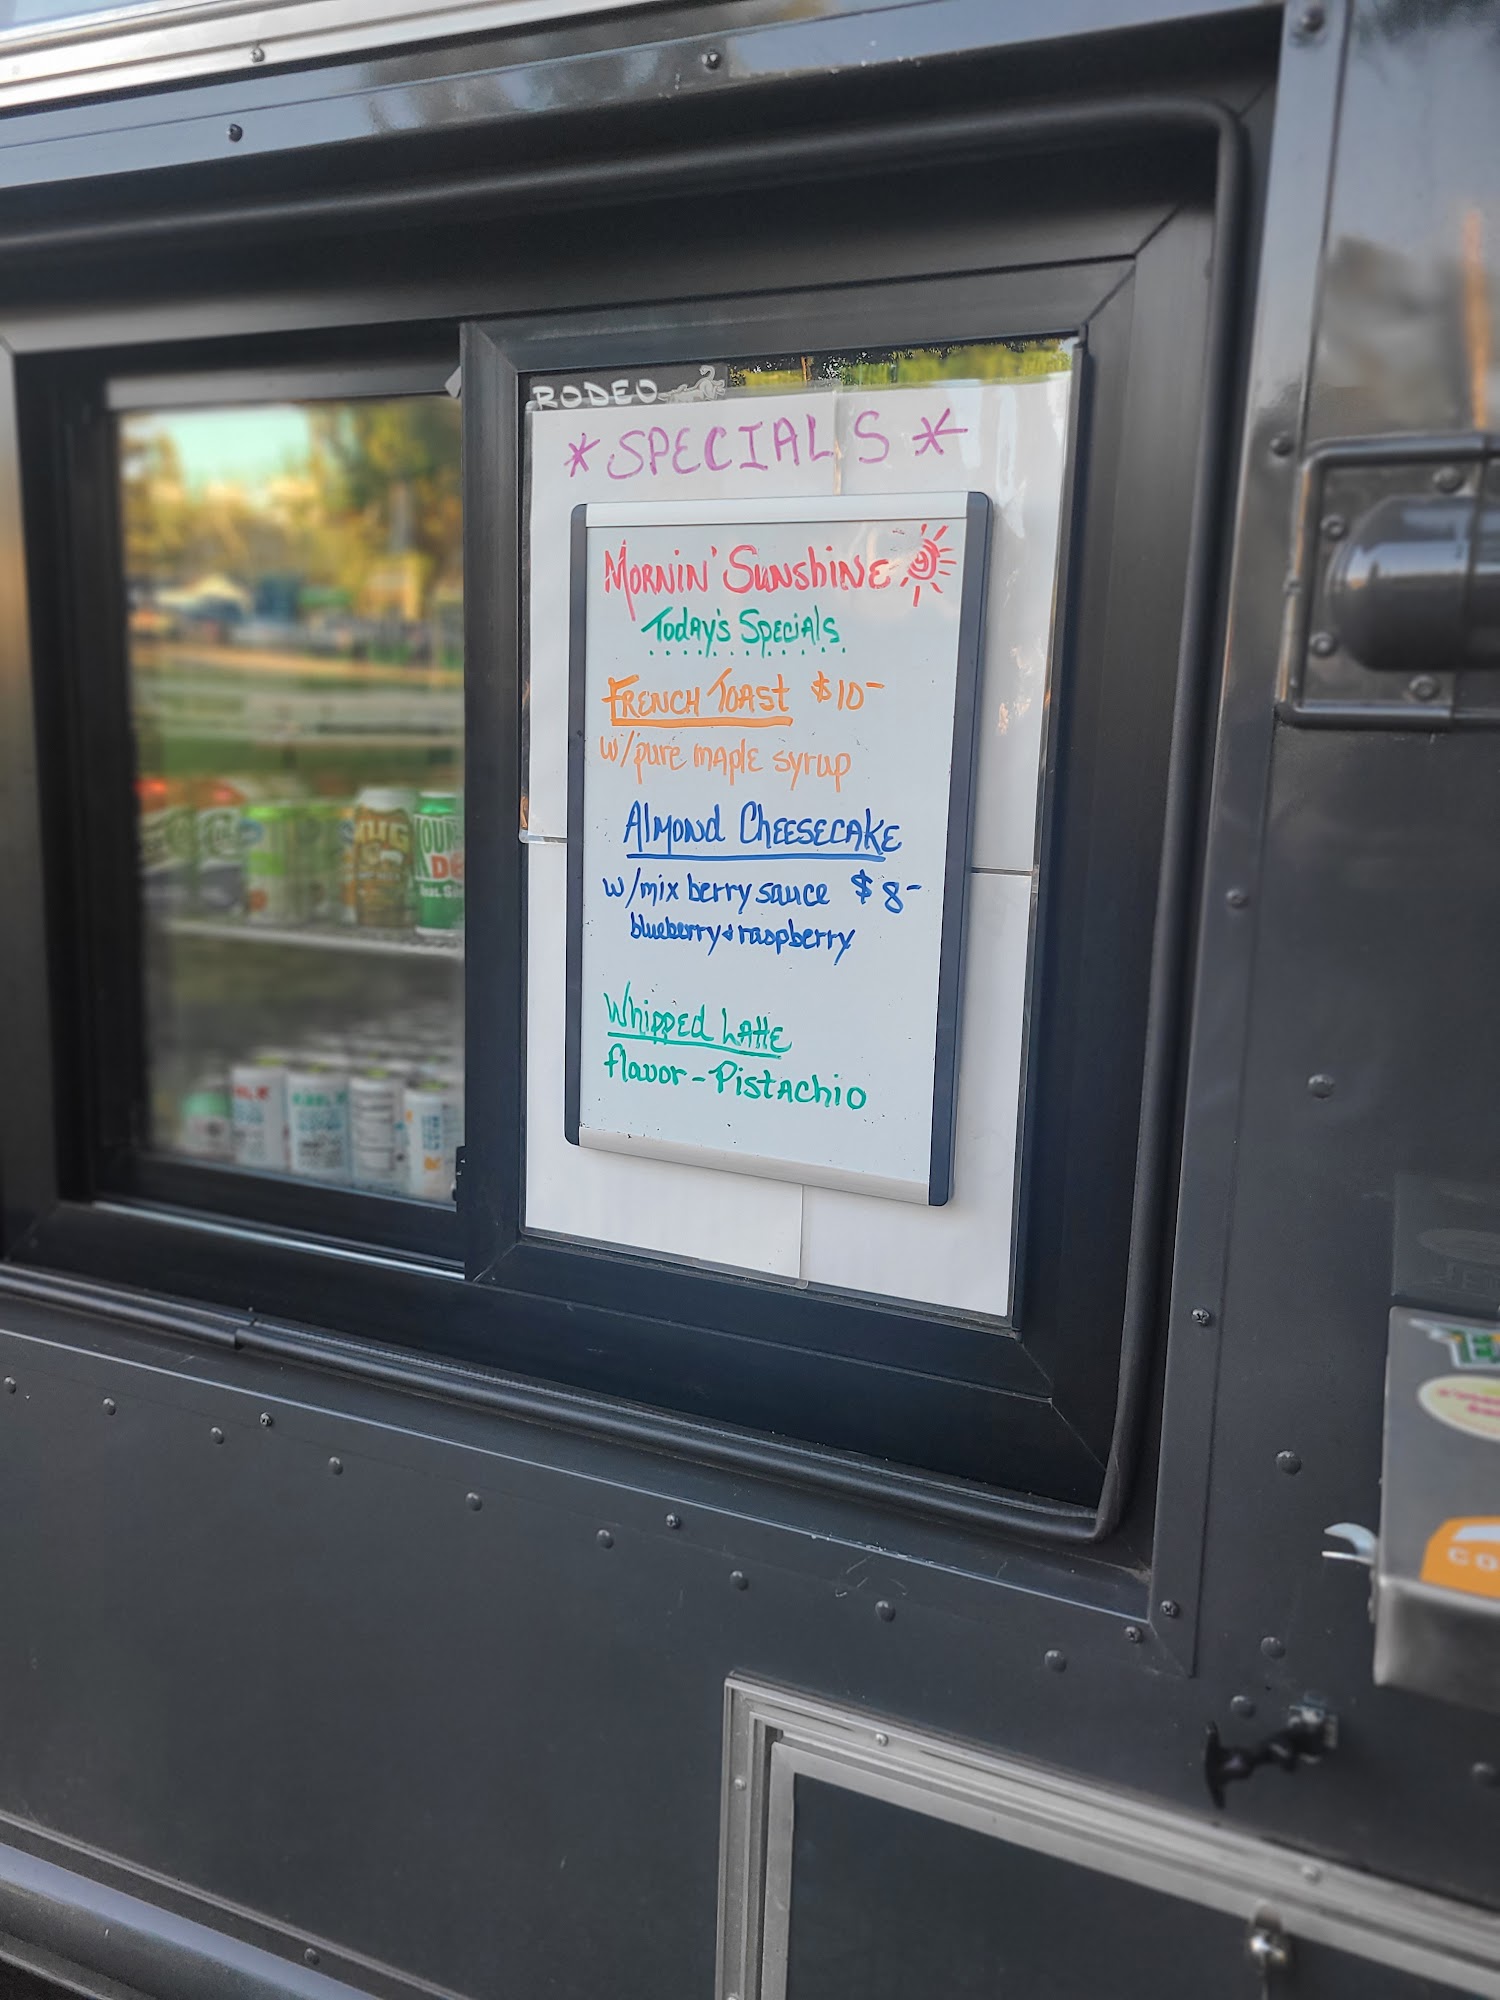 RODEO
*SPECIALS*
MORNIN' SUNShINE
TODAY'S SPECIAlS
FRENCH TOAST $10-
w/pure maple syrup
AlMONd CHEESECAKE
w/mix berry sauce $8-
blueberry & raspberry
WhippEd LATTE
flavor-PistAchio
MUG
MOUN
DE
CO